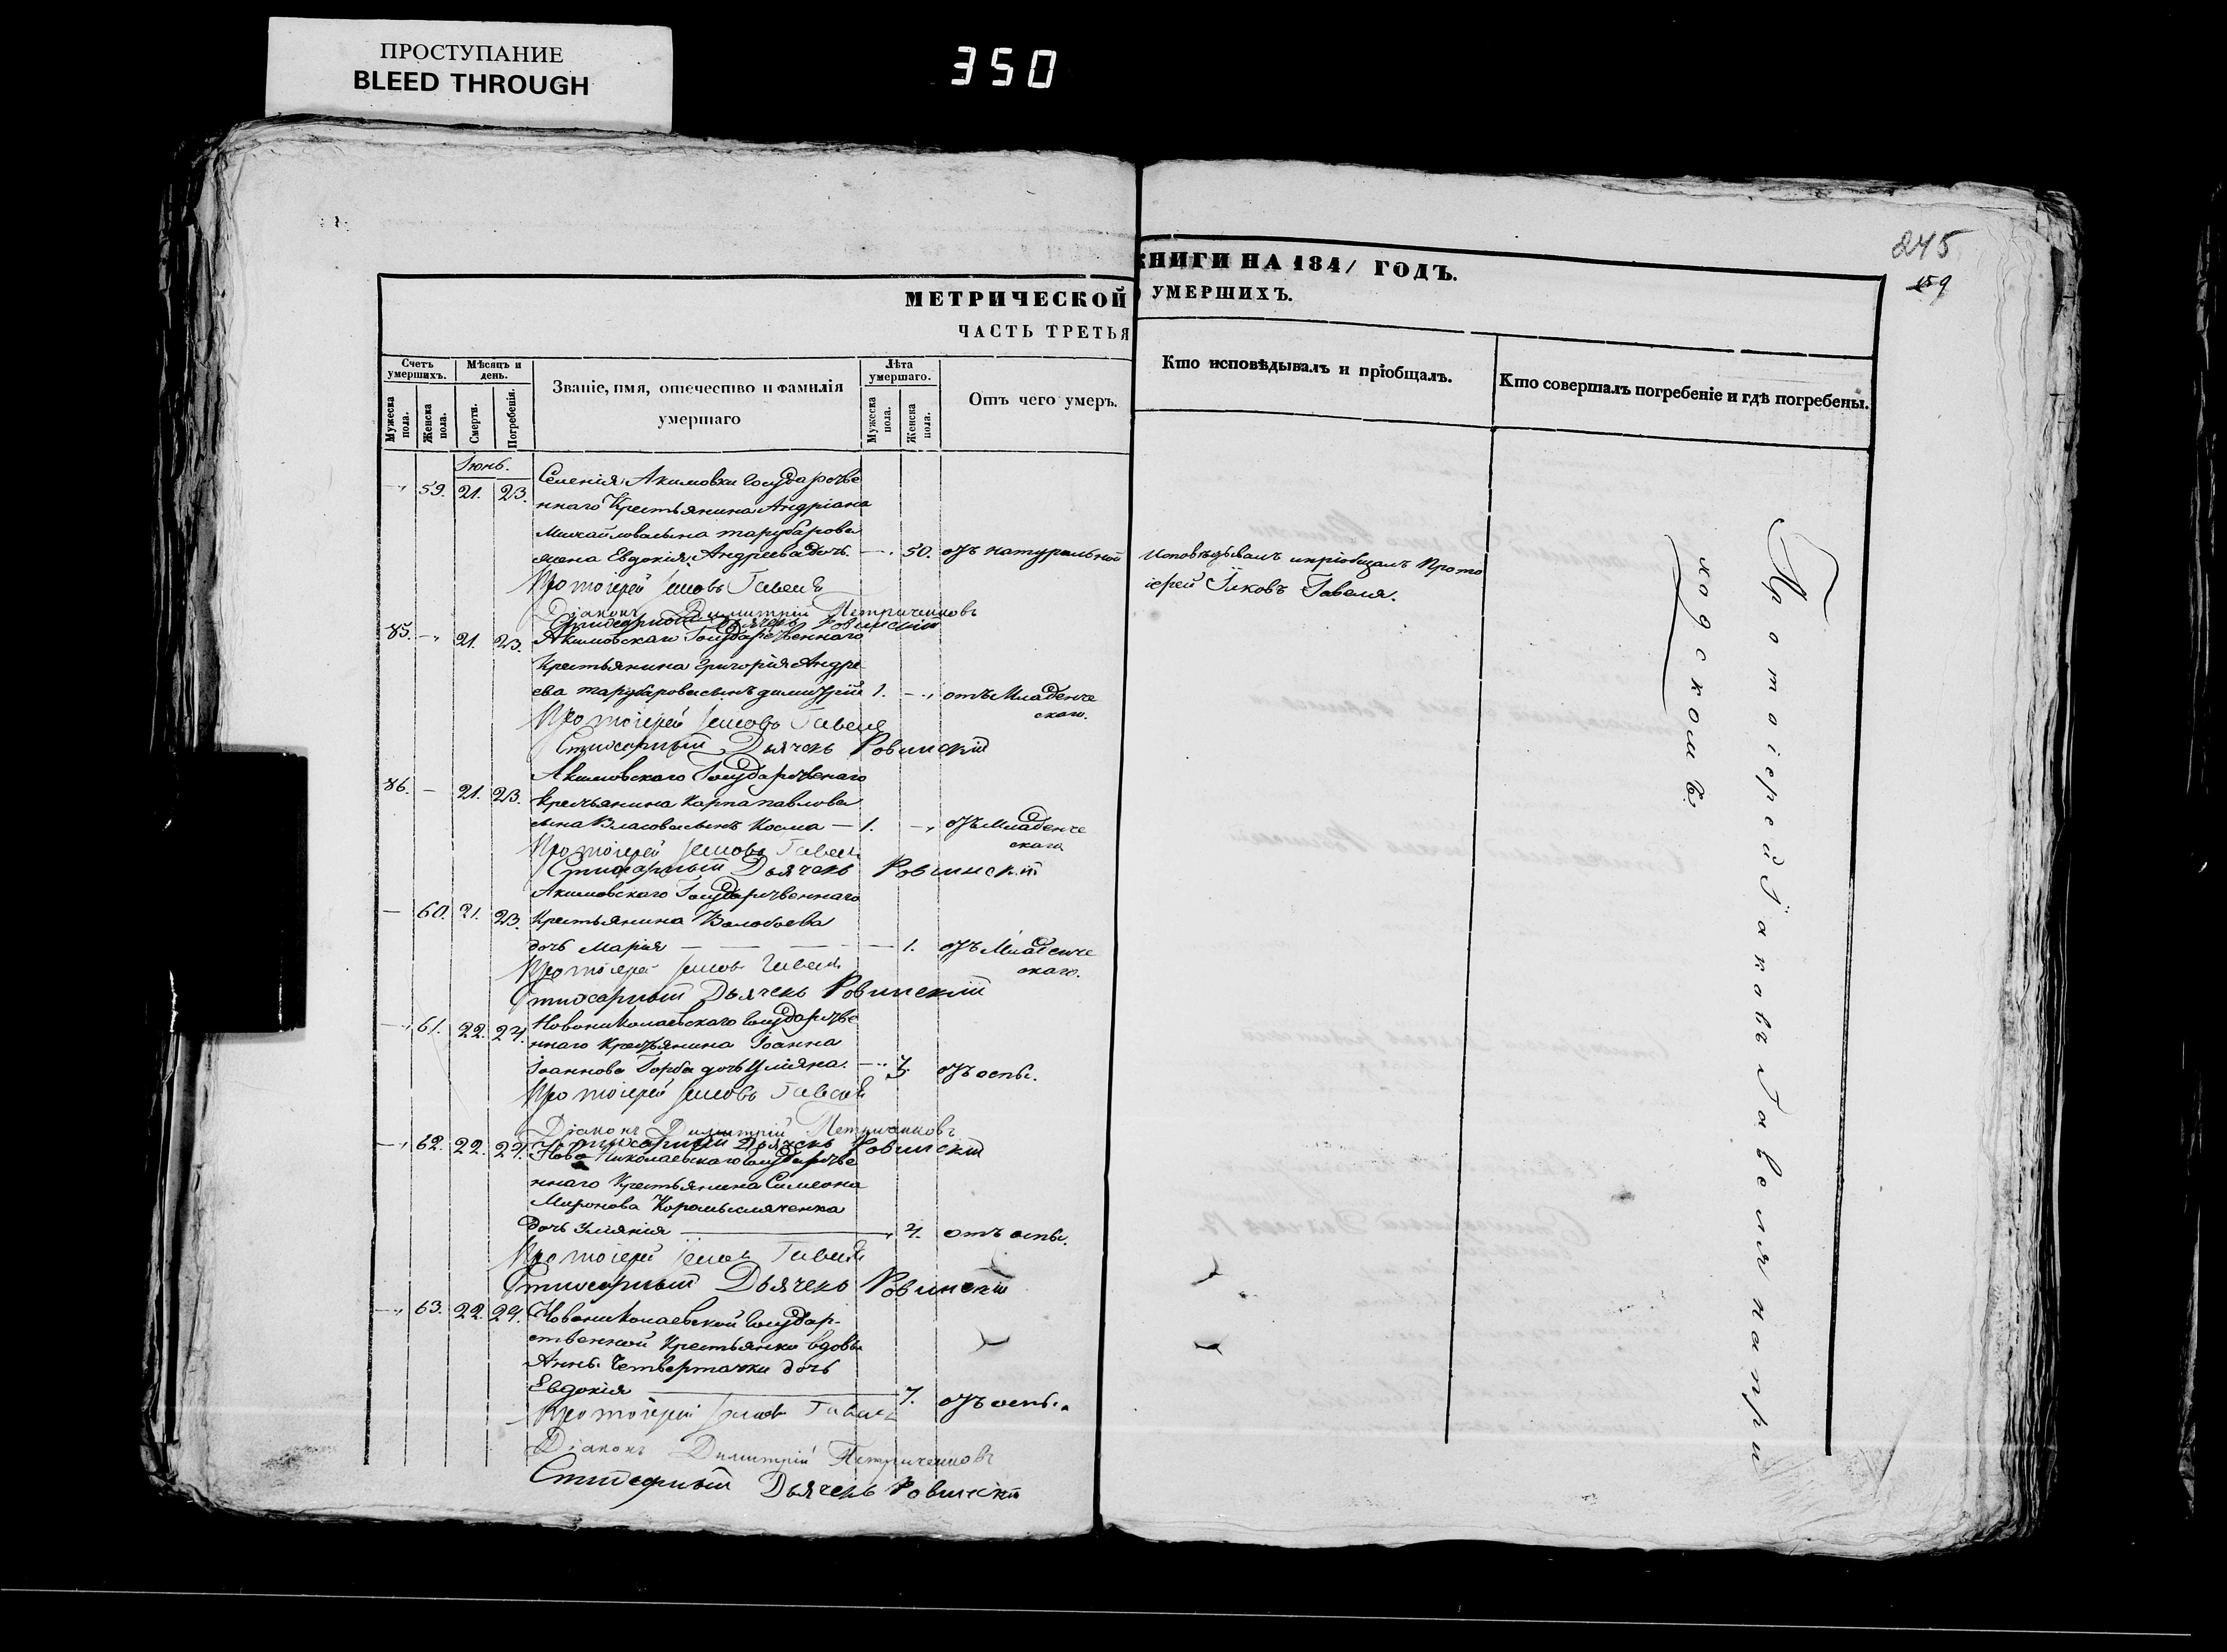 ПРОСТУПАНИЕ
BLEED THROUGH
350
245
159
МЕТРИЧЕСКОЙ КНИГИ НА 1841 ГОДЪ.
ЧАСТЬ ТРЕТЬЯ УМЕРШИХЪ.
Счетъ умершихъ.
Мужеска пола.
Женска пола.
Мѣсяцъ и день.
Смерти.
Погребенія.
Званіе, имя, отечество и фамилія
умершаго
Лѣта умершаго.
Мужеска пола.
Женска пола.
Отъ чего умеръ.
Кто исповѣдывалъ и пріобщалъ.
Кто совершалъ погребеніе и гдѣ погребены.
Іюнь.
59. 21. 23. Селенія Акимовки Государстве
ннаго Крестьянина Андріана
Михайлова сына
жена Евдокія Андреева дочь. 50. отъ натуральной
Исповѣдывалъ и пріобщалъ Прото
іерей Іаковъ Гавеля.
Протоіерей Іаковъ Гавеля
Діаконъ Димитрій Петриченковъ
Стихарный Дьячекъ Ровинскій
85. 21. 23. Акимовскаго Государственнаго
Крестьянина Григорія Андре
ева сынъ Димитрій 1. отъ Младенче
скаго.
Протоіерей Іаковъ Гавеля
Стихарный Дьячекъ Ровинскій
86. 21. 23. Акимовскаго Государственнаго
Крестьянина Карпа Павлова
сына Власова сынъ Косма 1. отъ Младенче
скаго
Протоіерей Іаковъ Гавеля
Стихарный Дьячекъ Ровинскій
60. 21. 23. Акимовскаго Государственнаго
Крестьянина
дочь Марія 1. отъ Младенче
скаго.
Протоіерей Іаковъ Гавеля
Стихарный Дьячекъ Ровинскій
61. 22. 24. Новониколаевскаго Государстве
ннаго Крестьянина Іоанна
Іоаннова Горба дочь Уліяна. 3. отъ оспы.
Протоіерей Іаковъ Гавеля
Діаконъ Димитрій Петриченковъ
Стихарный Дьячекъ Ровинскій
62. 22. 24. Ново Николаевскаго Государстве
ннаго Крестьянина Симеона
Миронова
дочь Уліянія 4. отъ оспы.
Протоіерей Іаковъ Гавеля
Стихарный Дьячекъ Ровинскій
63. 22. 24. Новониколаевской Государ-
ственной Крестьянки вдовы
Анны Четвертачки дочь
Евдокія 7. отъ оспы.
Протоіерей Іаковъ Гавеля
Діаконъ Димитрій Петриченковъ
Стихарный Дьячекъ Ровинскій
Протоіерей Іаковъ Гавеля на при
ходскомъ.